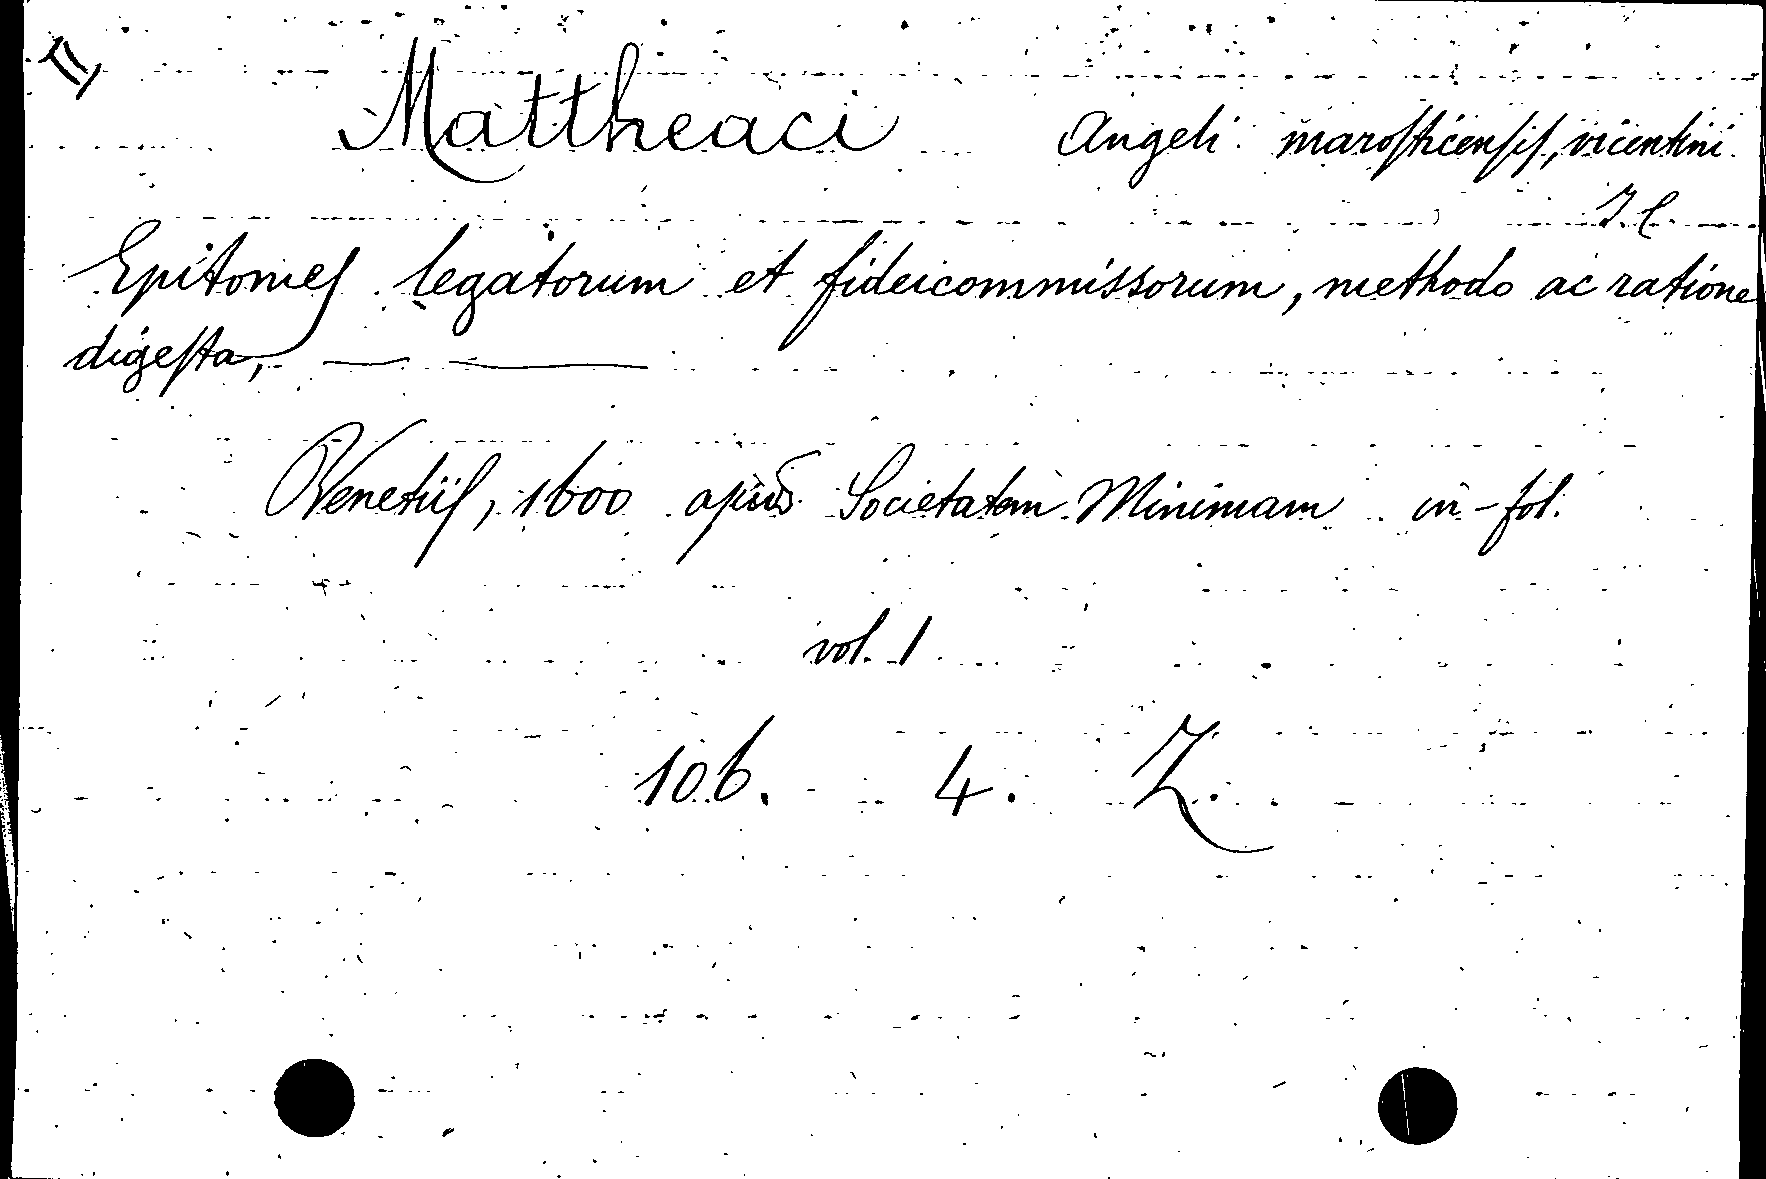 II
Mattheaci Angeli maroſticenſiſ, vicentini
J.C.
Epitomeſ legatorum et fideicommissorum, methodo ac ratione
digeſta, — ——
Venetiiſ, 1600 apud Societatem Minimam in-fol.
vol. 1
106. 4. Z.